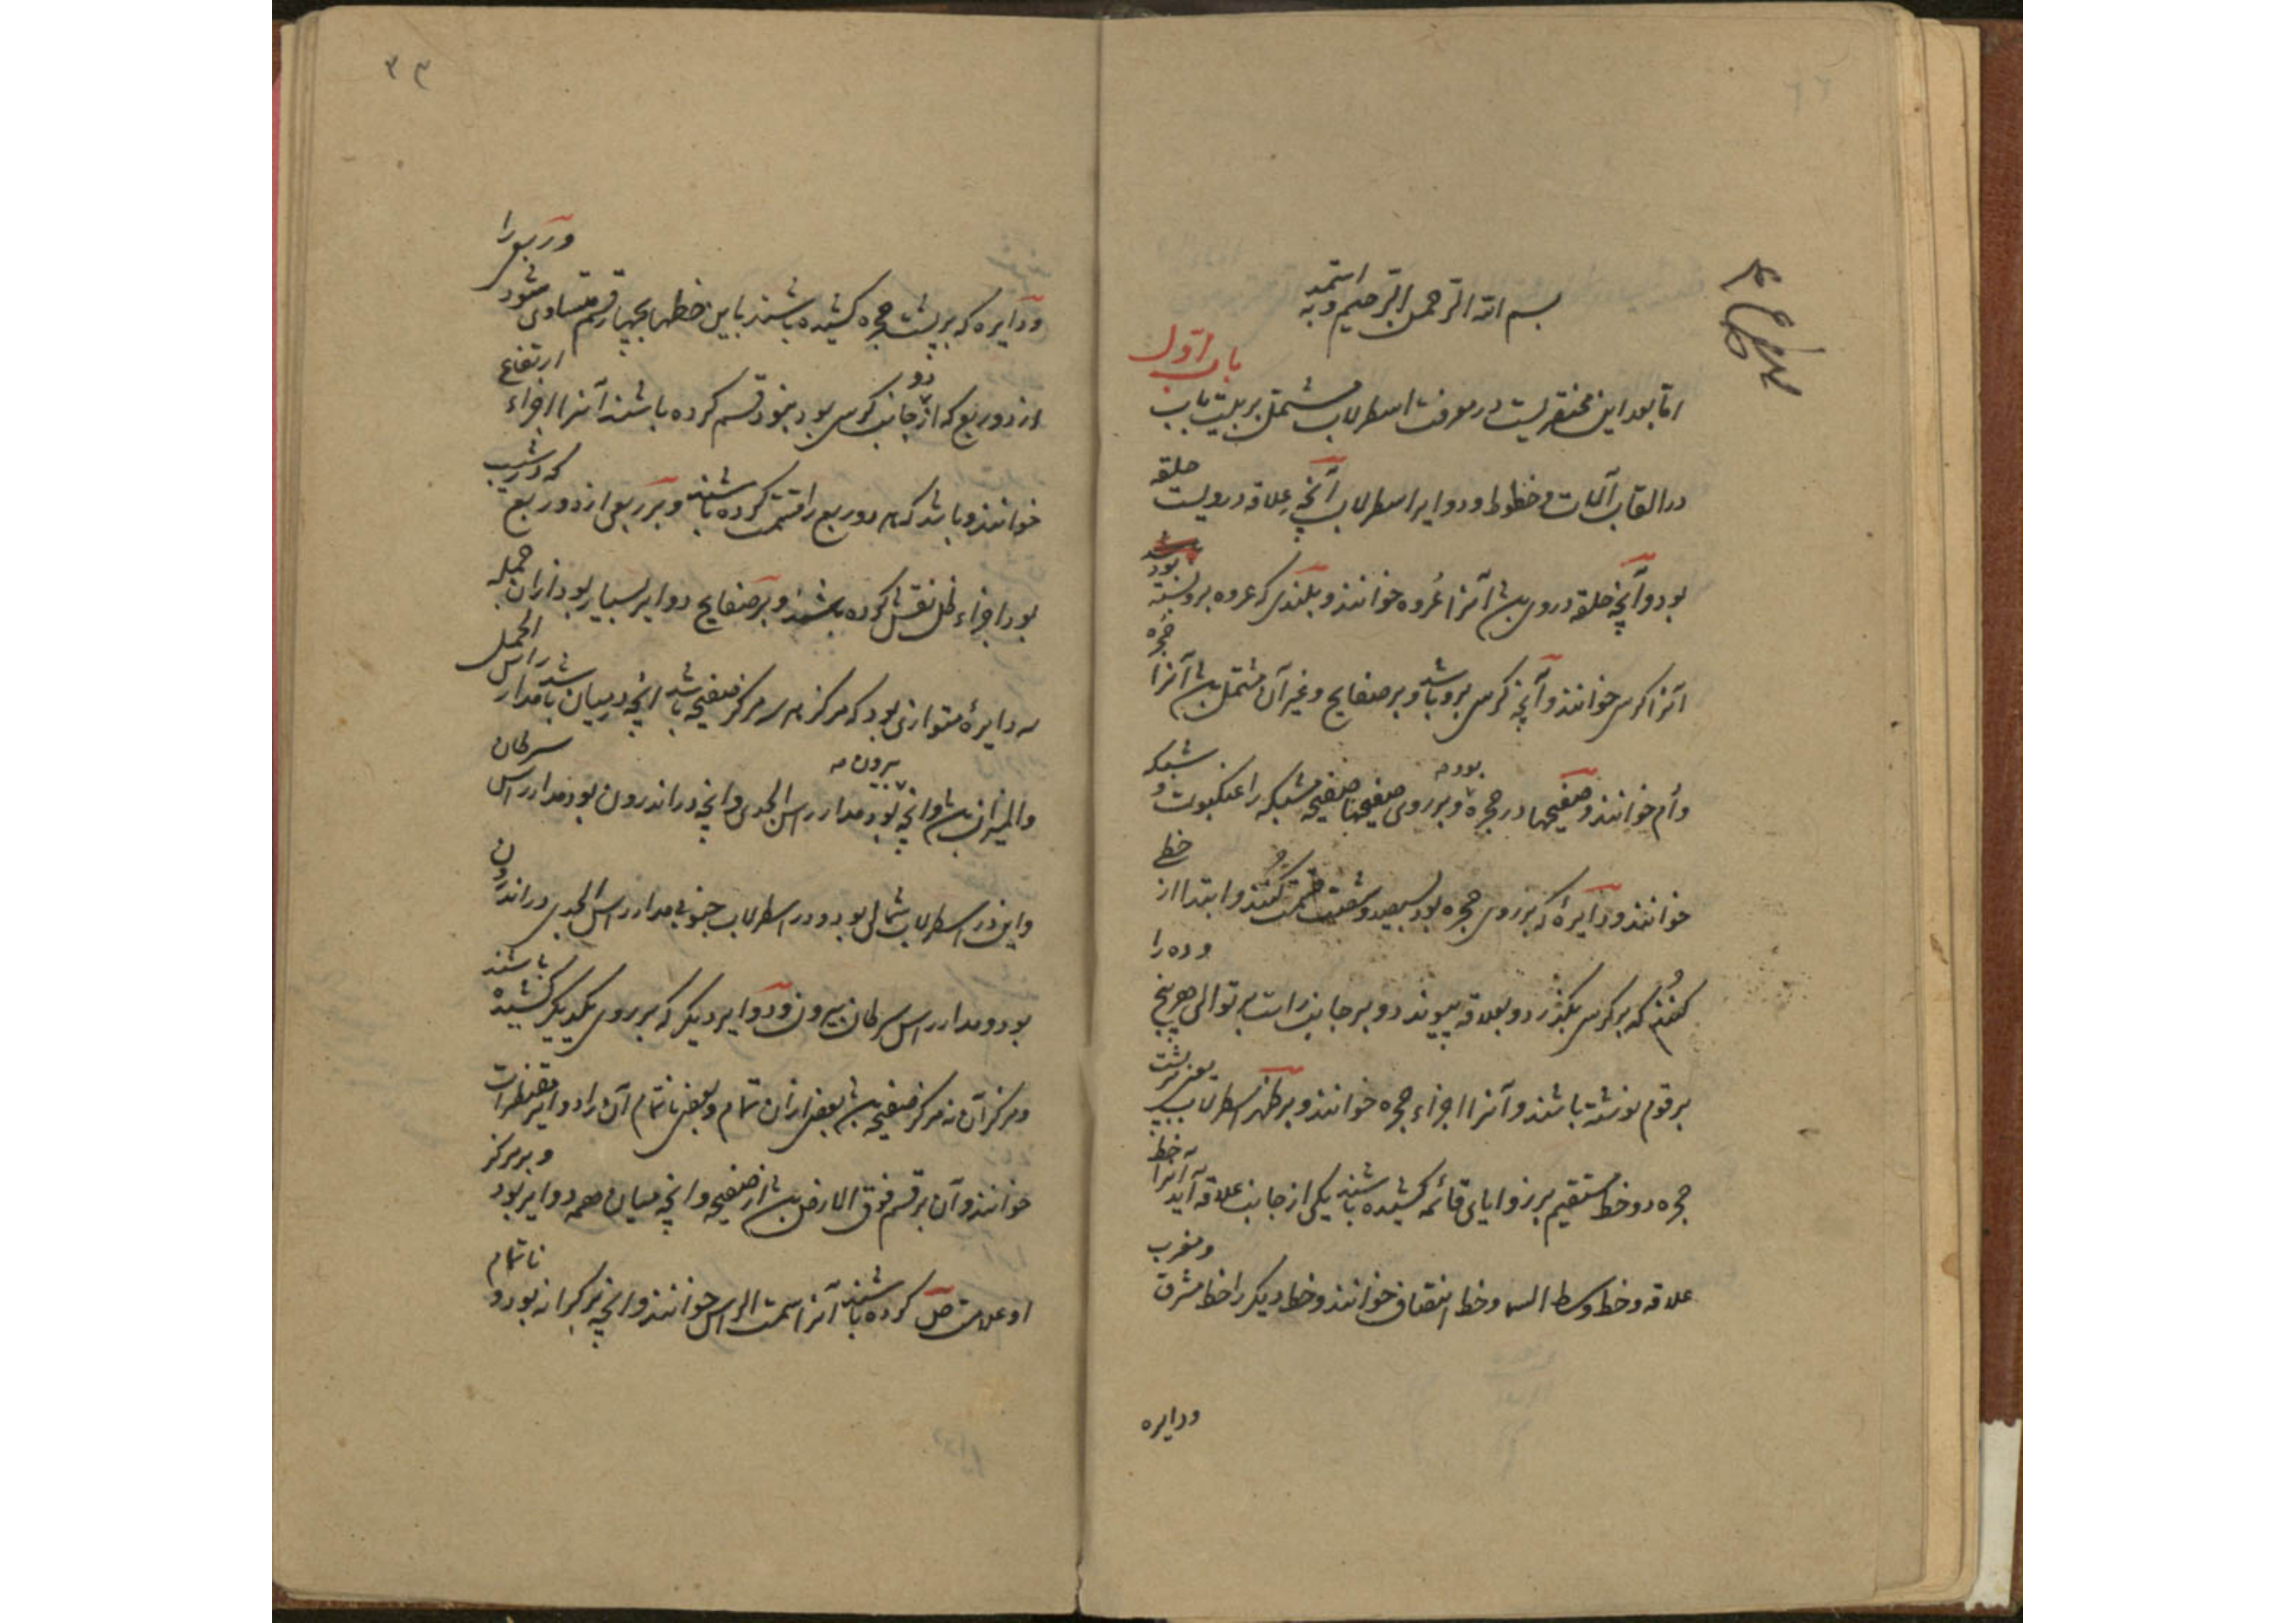 بسم الله الرحمن الرحیم وبه استمد
اما بعد این مختصریست در معرفت اسطرلاب مشتمل بر بیست باب باب اول
در القاب آلات و خطوط و دوایر اسطرلاب آنچه علاقه درویست حلقه
بود و آنچه حلقه در وی باشد آنرا عُروه خوانند و بلندی که عروه برو بسته بود
آنرا کرسی خوانند و آنچه کرسی برو باشد و بر صفایح و غیر آن مشتمل باشد آنرا حجره
و اُم خوانند و صفیحها در حجره بود و بر روی صفیحها صفیحه مشبکه را عنکبوت و شبکه
خوانند و دایرهٔ که بر روی حجره بود بسیصد و شصت قسمت کُنند و ابتدا از خطی
کُنند که بر کرسی بگذرد و بعلاقه پیوندد و بر جانب راست بر توالی هر پنج و ده را
برقوم نوشته باشند و آنرا اجزاء حجره خوانند و بر ظهر اسطرلاب یعنی پشت
حجره دو خط مستقیم بر زوایای قائمه کشیده باشند یکی از جانب علاقه آید آنرا خط
علاقه و خط وسط السما و خط انتصاف خوانند و خط دیگر را خط مشرق و مغرب
ودایره
۳۳
و دایره که بر پشت حجره کشیده باشند باین خطها بچهار قسم متساوی شود و ربع را
از دو ربع که از جانب کرسی بود بنود قسم کرده باشند آنرا اجزاء ارتفاع
خوانند و باشد که هر دو ربع را قسمت کرده باشند و بر ربعی از دو ربع که در شیب
بود اجزاء ظل نقش کرده باشند و بر صفایح دوایر بسیار بود ازان جمله
سه دایرهٔ متوازی بود که مرکز هر سه مرکز صفیحه باشد انچه در میان باشد مدار راس الحمل
والمیزان باشد وانچه بیرون بود مدار راس الجدی وانچه در اندرون بود مدار راس سرطان
و این در اسطرلاب شمالی بود و در اسطرلاب جنوبی مدار راس الجدی در اندرون
بود و مدار راس سرطان بیرون و دوایر دیگر که بر روی یکدیگر کشیده باشند
و مرکز آن نه مرکز صفیحه باشد بعضی ازان تمام و بعضی ناتمام آن را دوایر مقنطرات
خوانند و آن بر قسم فوق الارض باشد از صفیحه وانچه میان همه دوایر بود و بر مرکز
او علامت ص کرده باشند آنرا سمت الراس خوانند وانچه بر کرانه بود و ناتمام